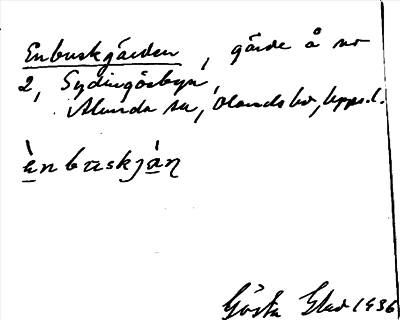 Enbuskgärden, gärde å nr
2, Sydingösbyn,
Alunda sn, Olands hd, Upps. l.
ènbuskjàɳ
Gösta Glad 1936